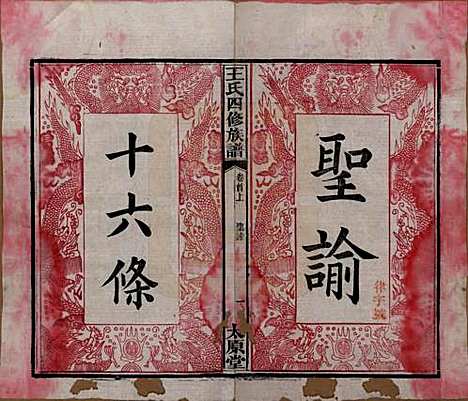 聖諭
律字號
王氏四修族譜
卷首上
聖諭
一
太原堂
十六條